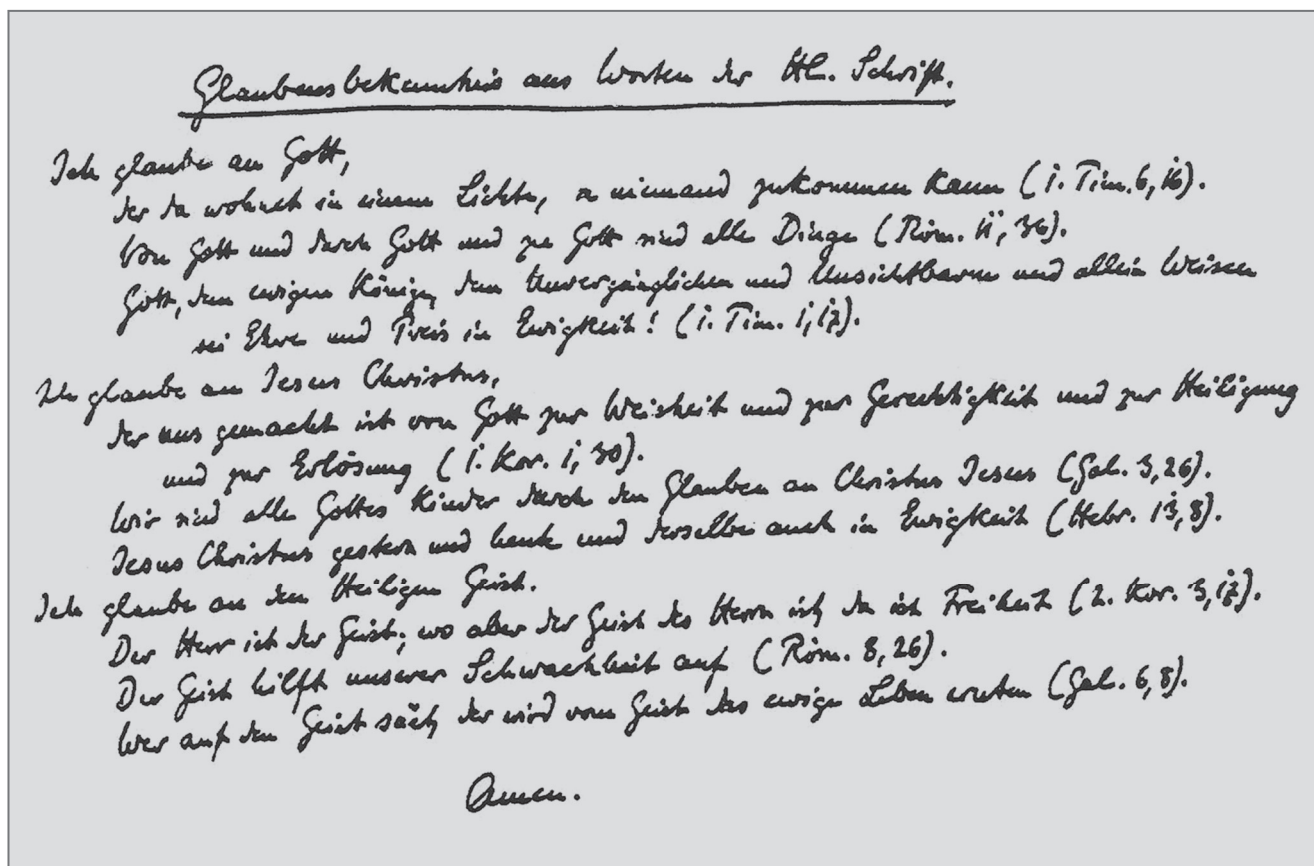 Glaubensbekenntnis aus Worten der Hl. Schrift.
Ich glaube an Gott,
der da wohnet in einem Lichte, zu niemand zukommen kann (1. Tim. 6, 16).
Von Gott und durch Gott und zu Gott sind alle Dinge (Röm. 11, 36).
Gott, dem ewigen König, dem Unvergänglichen und Unsichtbaren und allein Weisen
sei Ehre und Preis in Ewigkeit! (1. Tim. 1, 17).
Ich glaube an Jesus Christus,
der uns gemacht ist von Gott zur Weisheit und zur Gerechtigkeit und zur Heiligung
und zur Erlösung (1. Kor. 1, 30).
Wir sind alle Gottes Kinder durch den Glauben an Christus Jesus (Gal. 3, 26).
Jesus Christus gestern und heute und derselbe auch in Ewigkeit (Hebr. 13, 8).
Ich glaube an den Heiligen Geist.
Der Herr ist der Geist; wo aber der Geist des Herrn ist, da ist Freiheit (2. Kor. 3, 17).
Der Geist hilft unserer Schwachheit auf (Röm. 8, 26).
Wer auf den Geist säet, der wird vom Geist das ewige Leben ernten (Gal. 6, 8).
Amen.